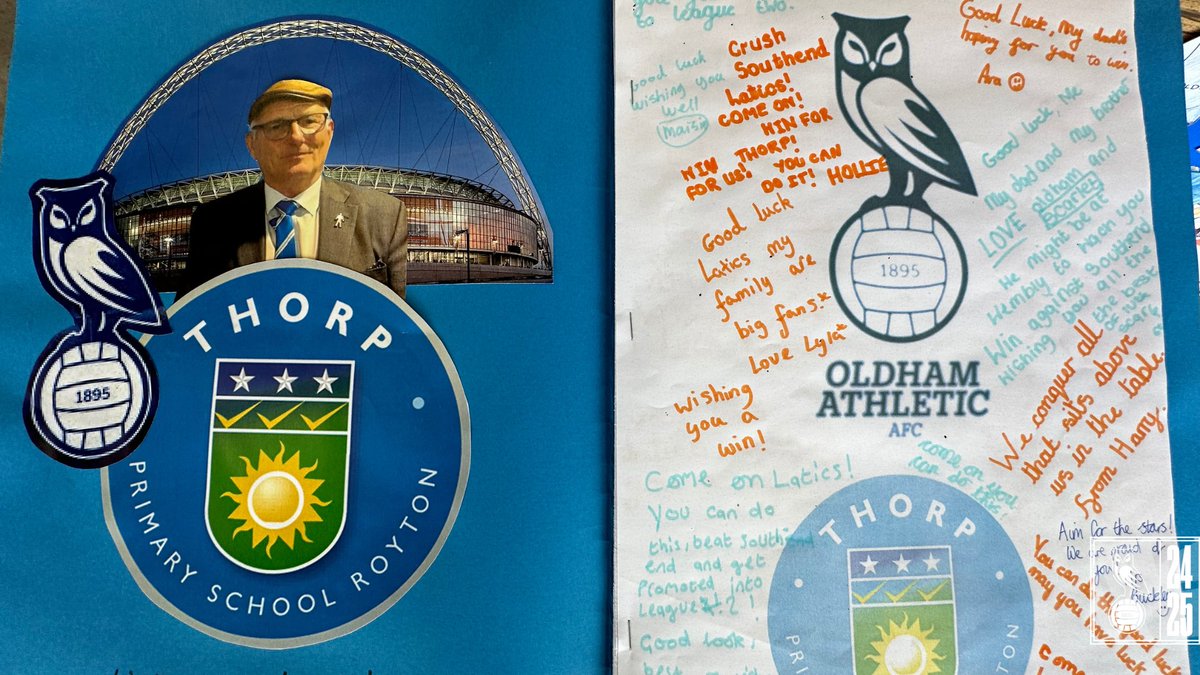 1895
THORP
PRIMARY SCHOOL ROYTON
to league two.
Good luck
wishing you
well
Crush
Southend
Latics!
COME ON!
WIN FOR
WIN THORP!
FOR US! YOU CAN
DO IT! HOLLIE
Good luck
Latics my
family are
big fans
Love Lyla
wishing
you a
win!
Come on Latics!
You can do
this, beat Southend
end and get
Promoted into
League 2!
Good look!
1895
OLDHAM
ATHLETIC
AFC
THORP
Good Luck, My dad's
hoping for you to win.
Ava
Good luck, Me
My dad and my brother
LOVE oldham
He might be at
Wembly to wach you
Win against Southend
wishing you all the
best
We conquer all
that sits above
us in the table.
From Harry.
come on you
can do this
Aim for the stars!
We are proud of
you!
You can do this good luck
may you have luck
Come
24
25